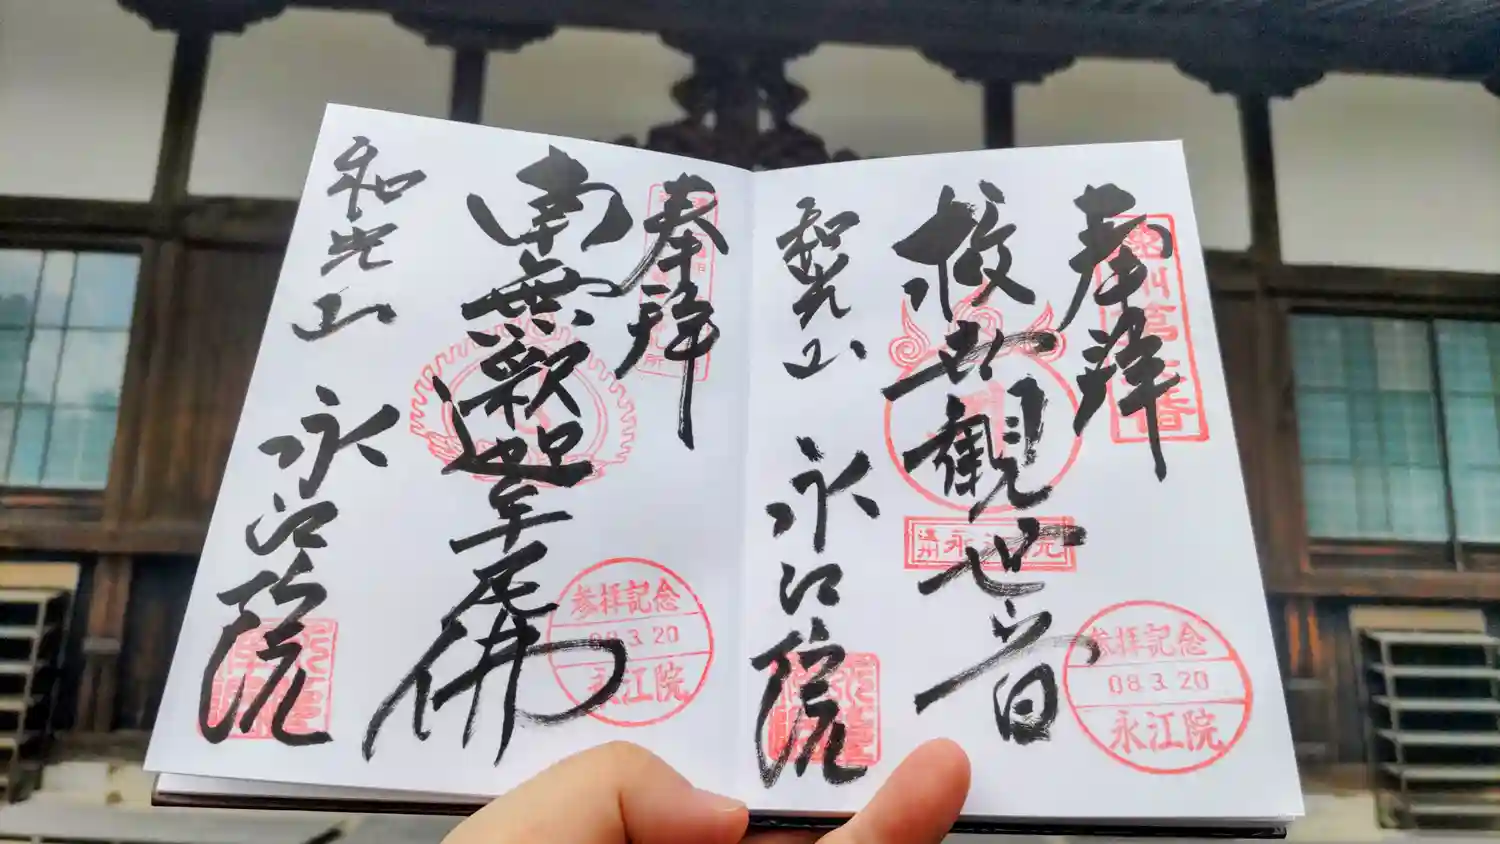 奉拝
救世観世音
和光山 永江院
遠州 永江院
参拝記念
08.3.20
永江院
奉拝
南無釈迦牟尼佛
和光山 永江院
参拝記念
08.3.20
永江院